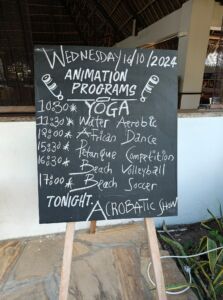 WEDNESDAY 16/10/2024
ANIMATION
PROGRAMS
10:30* YOGA
11:30* Water Aerobic
12:00* African Dance
15:30* Petanque Competition
16:30* Beach Volleyball
17:00* Beach Soccer
TONIGHT. ACROBATIC SHOW